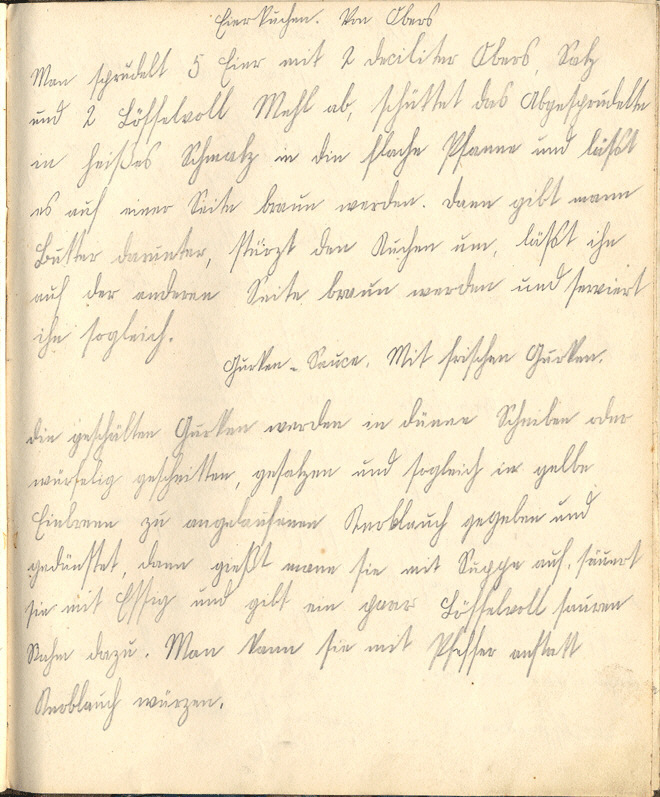 Eierkuchen. Von Obers
Man sprudelt 5 Eier mit 2 deciliter Obers, Salz
und 2 Löffelvoll Mehl ab, schüttet das Abgesprudelte
in heißes Schmalz in die flache Pfanne und läßt
es auf einer Seite braun werden. Dann gibt mann
Butter darunter, stürzt den Kuchen um, läßt ihn
auf der anderen Seite braun werden und serviert
ihn sogleich.
Gurken-Sauce. Mit frischen Gurken.
die geschälten Gurken werden in dünne Scheiben oder
würfelig geschnitten, gesalzen und sogleich in gelbe
Einbrenn zu angelaufenen Knoblauch gegeben und
gedünstet, dann gießt mann sie mit Suppe auf, säuert
sie mit Essig und gibt ein paar Löffelvoll sauren
Rahm dazu. Man kann sie mit Pfeffer anstatt
Knoblauch würzen.